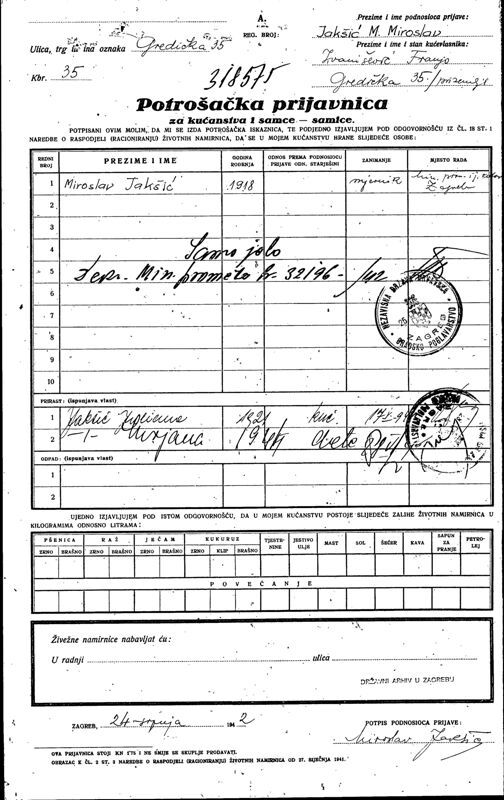 A.
Ulica, trg ili ina oznaka Gredička 35
REG. BROJ:
Prezime i ime podnosioca prijave:
Jakšić M. Miroslav
Prezime i ime i stan kućevlasnika:
Ivanišević Franjo
Gredička 35./prizemlje
Kbr. 35
318575
Potrošačka prijavnica
za kućanstva i samce — samice.
POTPISANI OVIM MOLIM, DA MI SE IZDA POTROŠAČKA ISKAZNICA, TE PODJEDNO IZJAVLJUJEM POD ODGOVORNOŠĆU IZ ČL. 18 ST. 1
NAREDBE O RASPODJELI (RACIONIRANJU) ŽIVOTNIH NAMIRNICA, DA SE U MOJEM KUĆANSTVU HRANE SLIJEDEĆE OSOBE:
REDNI BROJ PREZIME I IME GODINA ROĐENJA ODNOS PREMA PODNOSIOCU PRIJAVE ODN. STARJEŠINI ZANIMANJE MJESTO RADA
1 Miroslav Jakšić 1918 Zagreb
2
3
4 Samo jelo
5 Min. prometa br. 32196 - /42
6
7
8
9
10
NEZAVISNA DRŽAVA HRVATSKA
ZAGREB
GRADSKO POGLAVARSTVO
PRIRAST: (ispunjava vlast)
1 Jakšić 1921 kuć.
2 —"— 1944 dete
OTPAD: (ispunjava vlast)
1
2
UJEDNO IZJAVLJUJEM POD ISTOM ODGOVORNOŠĆU, DA U MOJEM KUĆANSTVU POSTOJE SLIJEDEĆE ZALIHE ŽIVOTNIH NAMIRNICA U
KILOGRAMIMA ODNOSNO LITRAMA:
PŠENICA RAŽ JEČAM KUKURUZ TJESTENINE JESTIVO ULJE MAST SOL ŠEĆER KAVA SAPUN ZA PRANJE PETROLEJ
ZRNO BRAŠNO ZRNO BRAŠNO ZRNO BRAŠNO ZRNO KLIP BRAŠNO
POVEĆANJE
Živežne namirnice nabavljat ću:
U radnji ulica
DRŽAVNI ARHIV U ZAGREBU
ZAGREB, 24 srpnja 1942
POTPIS PODNOSIOCA PRIJAVE:
Miroslav Jakšić
OVA PRIJAVNICA STOJI KN 0'75 I NE SMIJE SE SKUPLJE PRODAVATI.
OBRAZAC K ČL. 2 ST. 3 NAREDBE O RASPODJELI (RACIONIRANJU) ŽIVOTNIH NAMIRNICA OD 27. SIJEČNJA 1941.